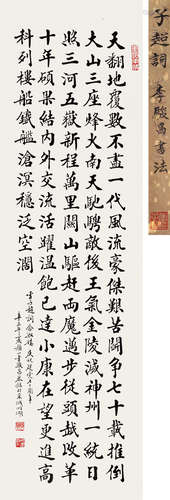 子超詞
書法
天翻地覆數不盡一代風流豪傑艱苦鬭爭七十載推倒
大山三座烽火南天馳騁敵後王氣金陵滅神州一統日
照三河五嶽新程萬里關山驅赶兩魔邁步從頭越改革
十年碩果結內外交流活躍溫飽已過小康在望更進高
科列樓船鐵艦滄溟穩泛空濶